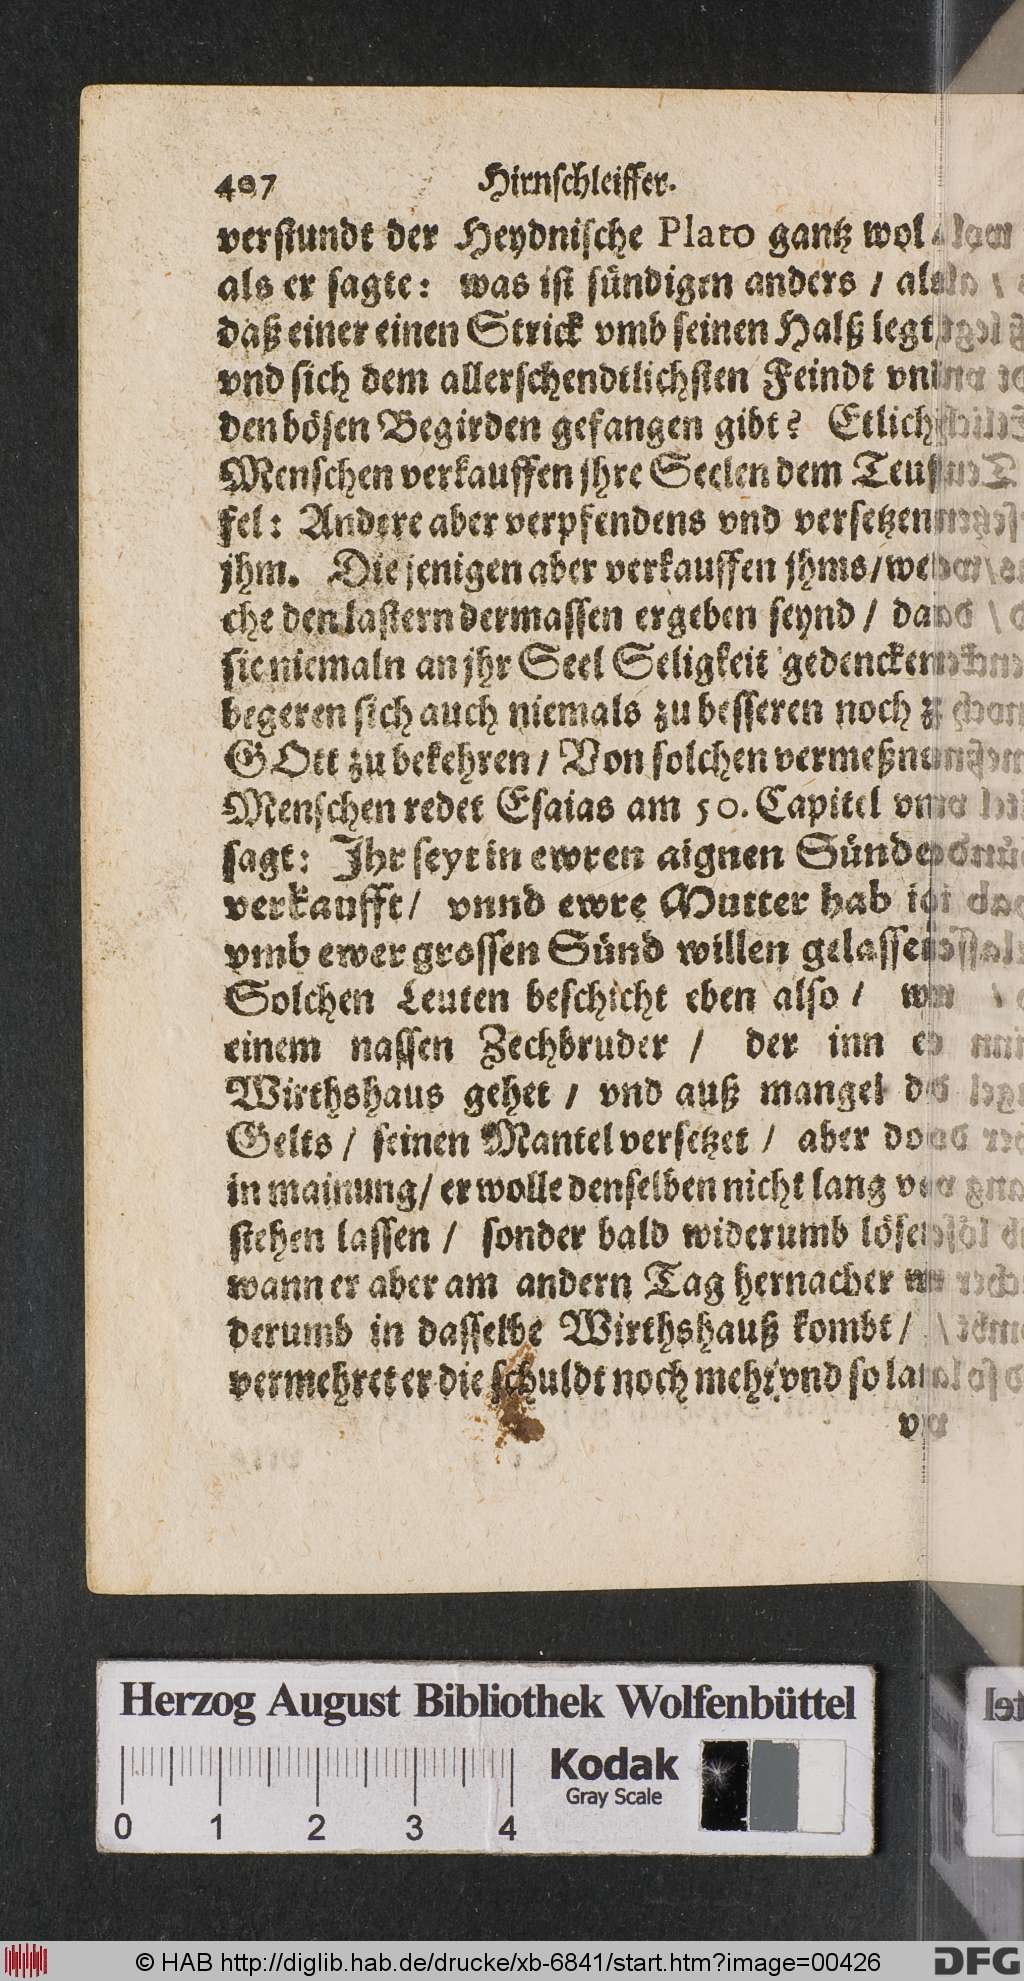 407 Hirnschleiffer.
verstundt der Heydnische Plato gantz wol /
als er sagte: was ist sündigen anders / als
daß einer einen Strick vmb seinen Halß legt
vnd sich dem allerschendtlichsten Feindt
den bösen Begirden gefangen gibt? Etlich
Menschen verkauffen jhre Seelen dem Teuf
fel: Andere aber verpfendens vnd versetzen
jhm. Die jenigen aber verkauffen jhms/ wel
che den lastern dermassen ergeben seynd /
sie niemaln an jhr Seel Seligkeit gedencken
begeren sich auch niemals zu besseren noch
GOtt zu bekehren / Von solchen vermeßnen
Menschen redet Esaias am 50. Capitel
sagt: Jhr seyt in ewren aignen Sünden
verkaufft / vnnd ewre Mutter hab ich
vmb ewer grossen Sünd willen gelassen
Solchen Leuten beschicht eben also /
einem nassen Zechbruder / der inn
Wirthshaus gehet / vnd auß mangel
Gelts / seinen Mantel versetzet / aber
in mainung/ er wolle denselben nicht lang
stehen lassen / sonder bald widerumb lösen
wann er aber am andern Tag hernacher
derumb in dasselbe Wirthshauß kombt /
vermehret er die schuldt noch mehr vnd so
Herzog August Bibliothek Wolfenbüttel
Kodak
Gray Scale
0 1 2 3 4
© HAB http://diglib.hab.de/drucke/xb-6841/start.htm?image=00426
DFG